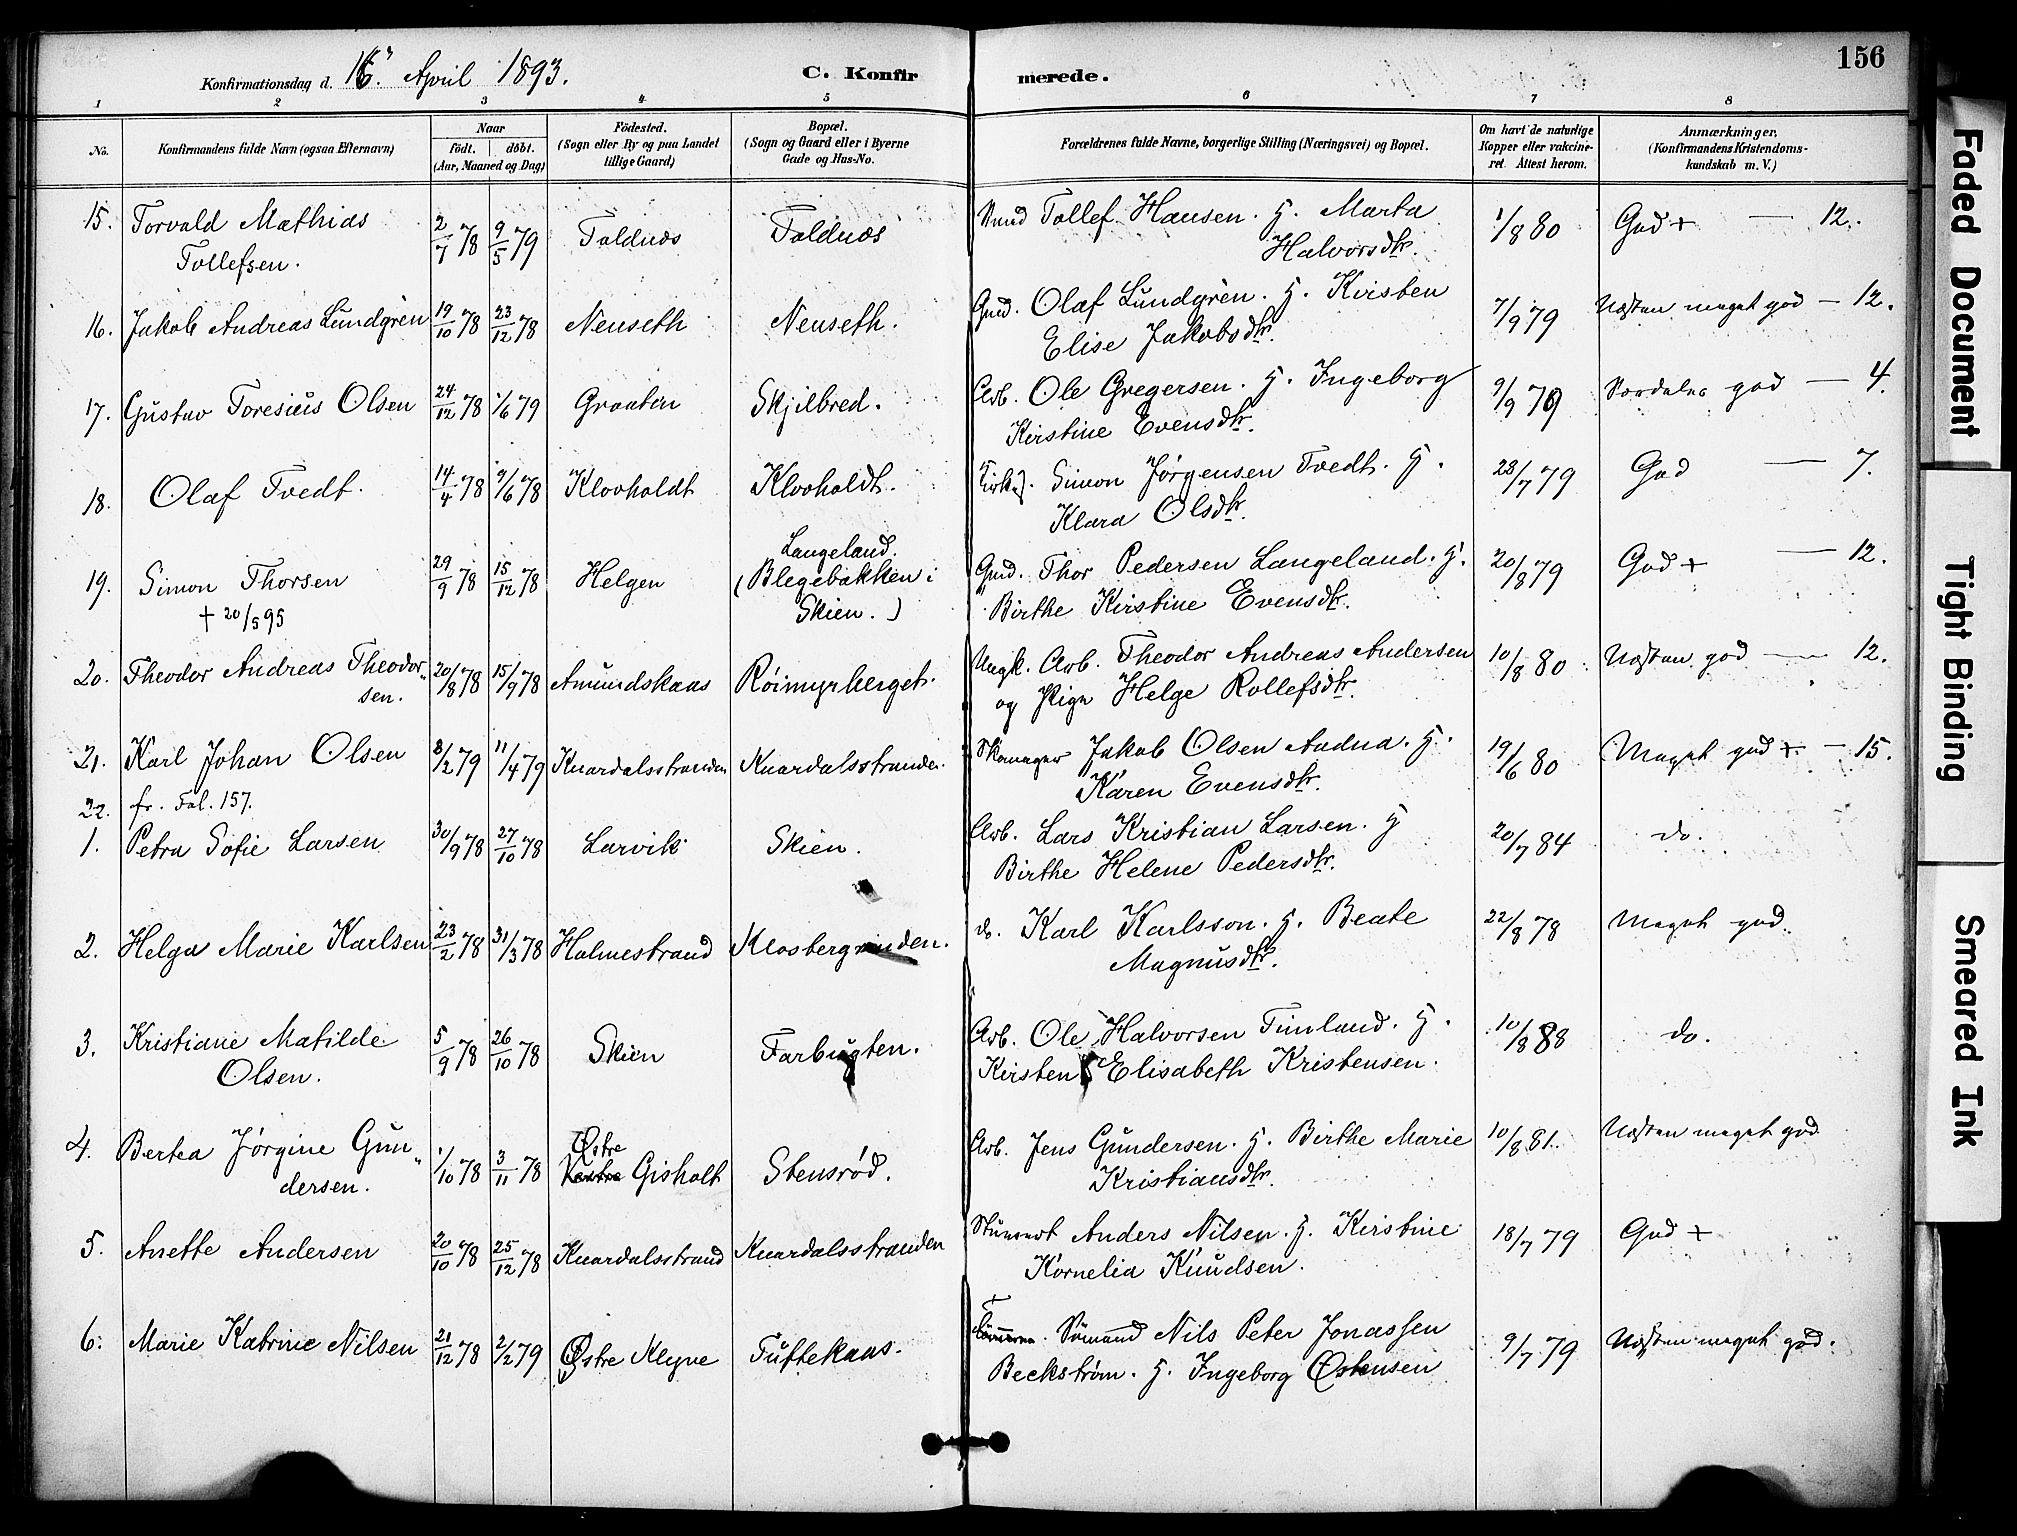 Konfirmationsdag d. 16. April 1893. C. Konfirmerede. 156
1 2 3 4 5 6 7 8
No. Konfirmandens fulde Navn (ogsaa Efternavn) Naar født. døbt. (Aar, Maaned og Dag) Fødested. (Sogn eller By og paa Landet tillige Gaard) Bopæl. (Sogn og Gaard eller i Byerne Gade og Hus-No. Forældrenes fulde Navne, borgerlige Stilling (Næringsvei) og Bopæl. Om havt de naturlige Kopper eller vakcineret. Attest herom. Anmærkninger. (Konfirmandens Kristendomskundskab m. V.)
15. Torvald Mathias 2/7 78 9/5 79 Foldnæs Foldnæs Tollef Hansen. H. Marta 1/8 80 God + — 12.
Tollefsen. Halvorsdtr.
16. Jakob Andreas Lundgren 19/10 78 23/12 78 Nenseth Nenseth. Gmd. Olaf Lundgren. H. Kirsten 7/9 79 Næsten meget god — 12.
Elise Jakobsdtr.
17. Gustav Toresius Olsen 24/12 78 1/6 79 Graaten Skjilbred. Arb. Ole Gregersen. H. Ingeborg 9/9 79 god — 4.
Kirstine Evensdtr.
18. Olaf Tvedt. 14/4 78 9/6 78 Klovholdt Klovholdt. Simon Jørgensen Tvedt. H. 23/7 79 God — 7.
Klara Olsdtr.
19. Simon Thorsen 29/9 78 15/12 78 Helgen Langeland. (Blegebakken i Skien.) Gmd. Thor Pedersen Langeland. H. 20/8 79 God + — 12.
+ 20/5 95 Birthe Kirstine Evensdtr.
20. Theodor Andreas Theodor„ 20/8 78 15/9 78 Amundskaas Röimyrberget. Ungk. Arb. Theodor Andreas Andersen 10/8 80 Næsten god — 12.
sen. og Pige Helge Rollefsdtr.
21. Karl Johan Olsen 8/2 79 11/4 79 Knardalsstranden Knardalsstranden. Skomager Jakob Olsen H. 19/6 80 Meget god + — 15.
Karen Evensdtr.
22. fr. Fol. 157.
1. Petra Sofie Larsen 30/9 78 27/10 78 Larvik Skien. Arb. Lars Kristian Larsen. H 20/7 84 do.
Birthe Helene Pedersdtr.
2. Helga Marie Karlsen 23/2 78 31/3 78 Holmestrand Klosbergrunden. do. Karl Karlsson. H. Beate 22/8 78 Meget god.
Magnusdtr.
3. Kristiane Matilde 5/9 78 26/10 78 Skien Farbugten. Arb. Ole Halvorsen Timland. H. 10/8 88 do.
Olsen. Kirsten Elisabeth Kristensen.
4. Bertea Jørgine Gun„ 1/10 78 3/11 78 Østre Vestre Gisholt Stensrød. Arb. Jens Gundersen. H. Birthe Marie 10/8 81. Næsten meget god
dersen. Kristiansdtr.
5. Anette Andersen 20/10 78 25/12 78 Knardalsstrand Knardalsstranden Stuvert Anders Nilsen. H. Kirstine 18/7 79 God +
Kornelia Knudsen.
6. Marie Katrine Nilsen 21/12 78 2/2 79 Østre Klyve Tuftekaas. Sömand Nils Peter Jonassen 9/7 79 Næsten meget god.
Beckstrøm. H. Ingeborg Østensen
Faded Document
Tight Binding
Smeared Ink